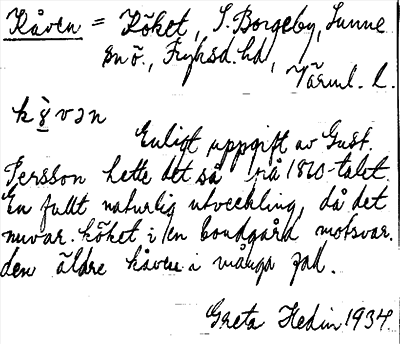 Kåven = Köket, S. Borgeby, Sunne
sn ö., Fryksd. hd,
Värml. l.
kå̀vən
Enligt uppgift av Gust.
Persson hette det så på 1860-talet.
En fullt naturlig utveckling, då det
nuvar. köket i en bondgård motsvar.
den äldre kåven i många fall.
Greta Hedin 1934.